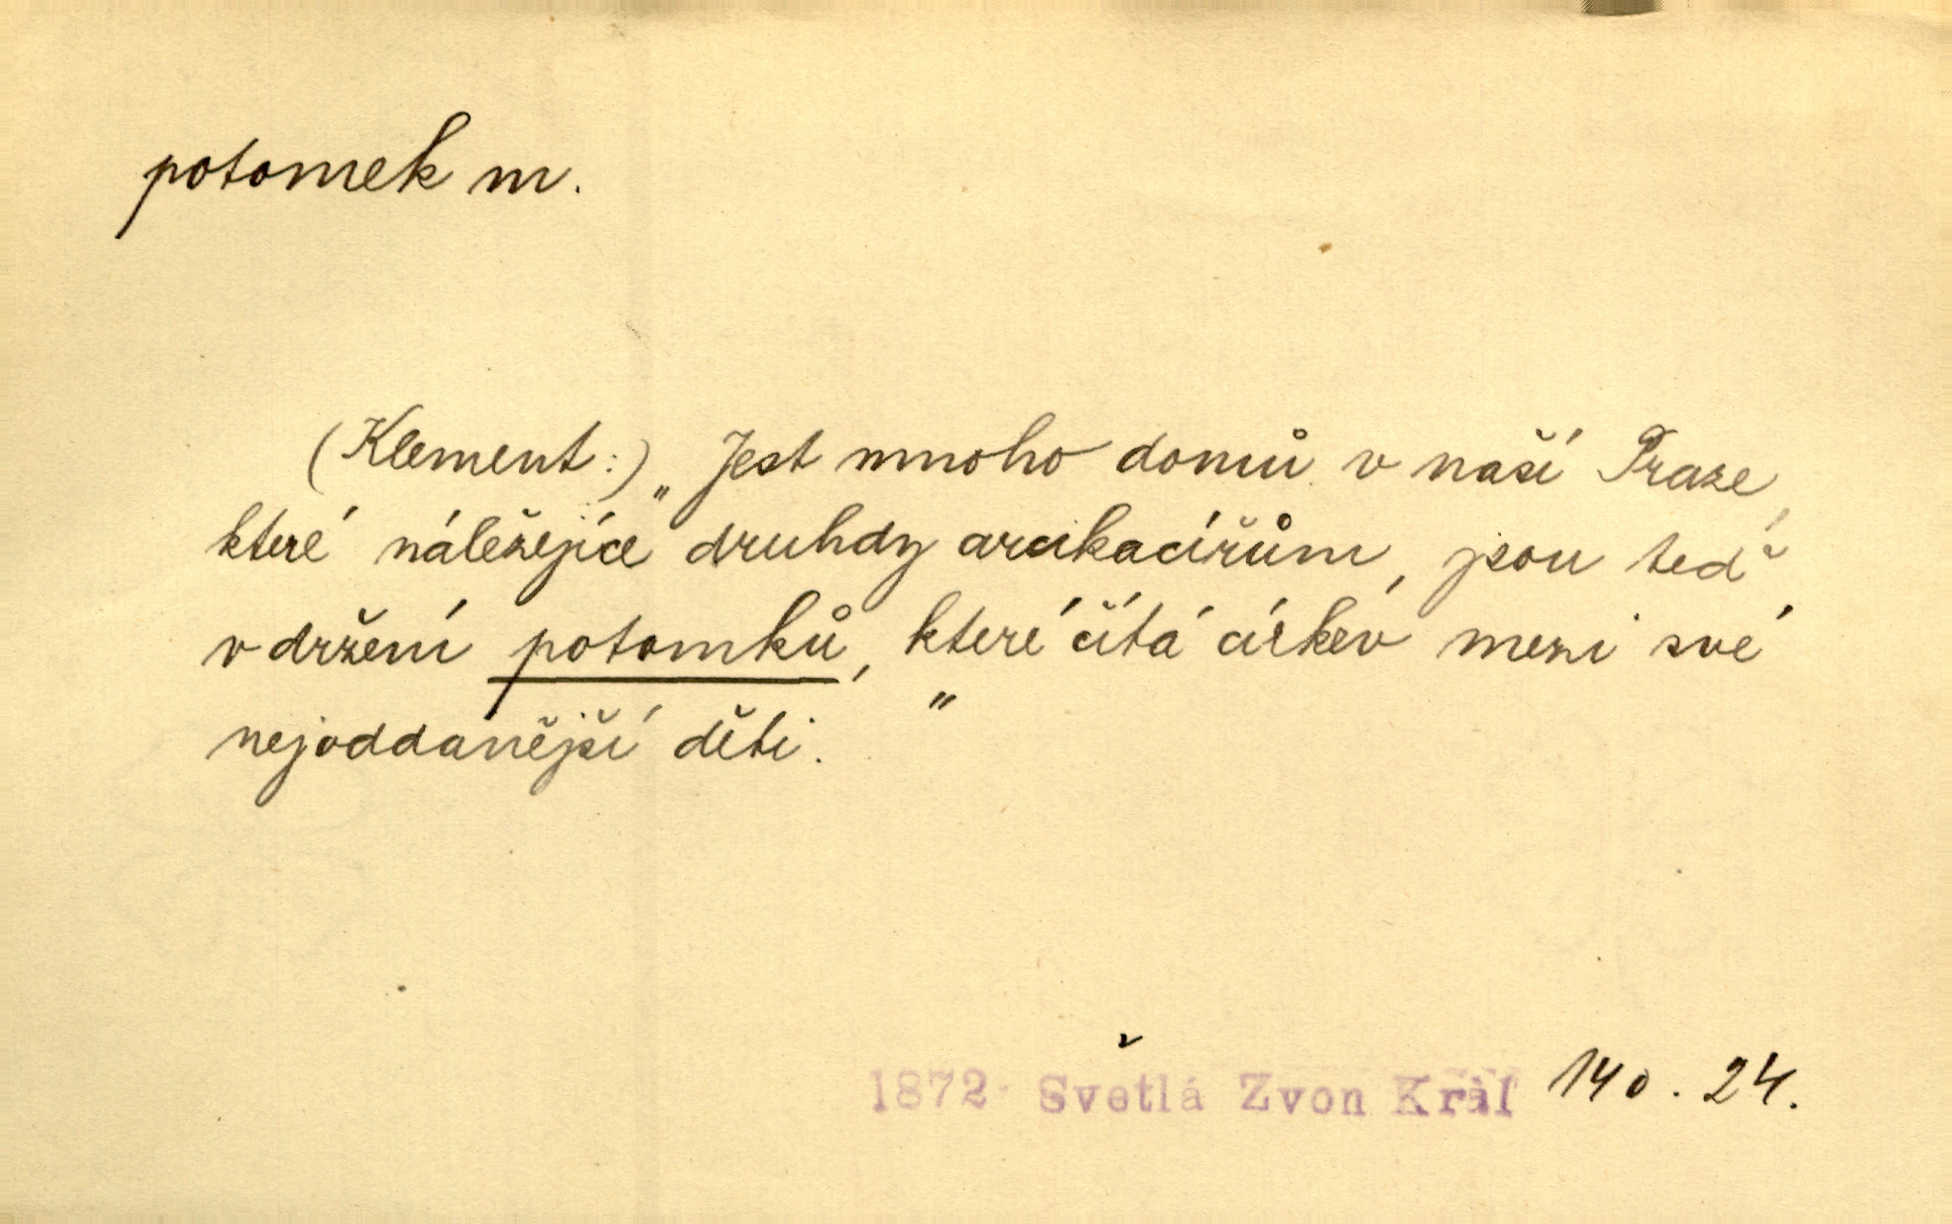 potomek m.
(Klement:) „Jest mnoho domů v naší Praze,
které náležejíce druhdy arcikacířům, jsou teď
v držení potomků, které čítá církev mezi své
nejoddanější děti."
1872 Světlá Zvon Král 140. 24.